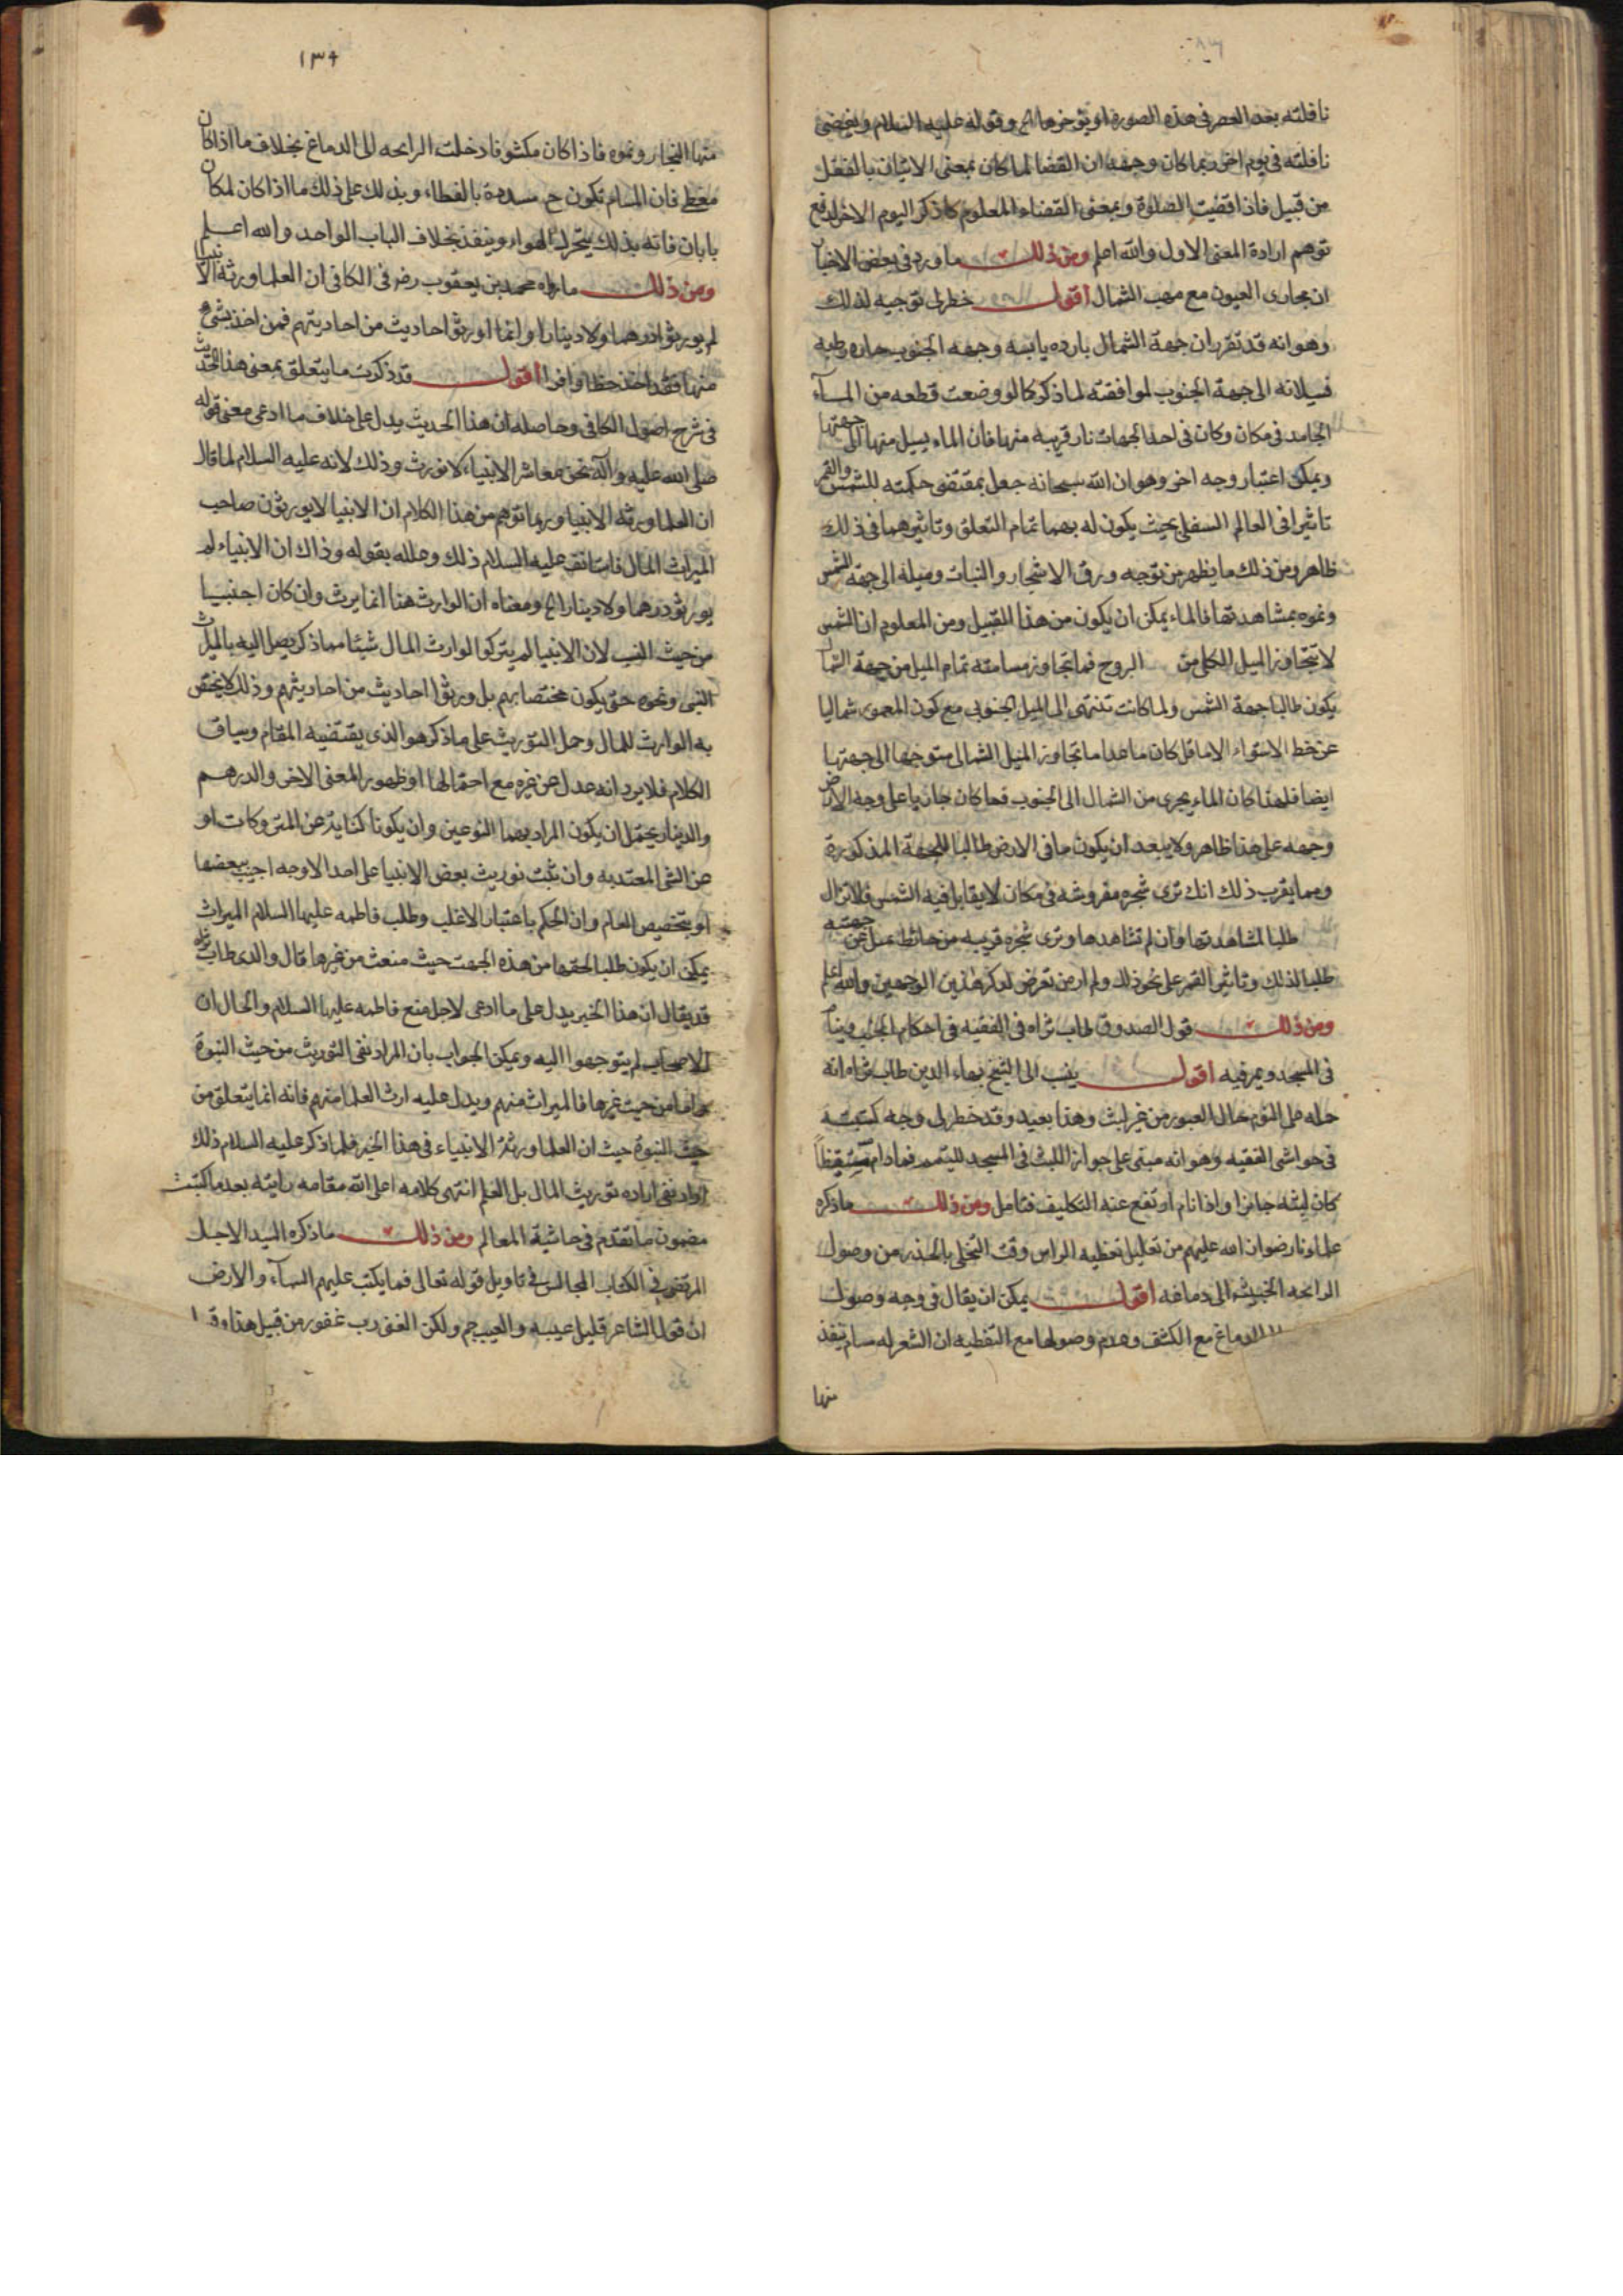 نافلته بعد العصر في هذه الصورة او يؤخرها الخ وقوله عليه السلام ويقضي
نافلته في يوم اخر ربما كان وجهه ان القضا لما كان بمعنى الاتيان بالفعل
من قبيل فاذا قضيت الصلوة وبمعنى القضاء المعلوم كا ذكر اليوم الاخر لدفع
توهم ارادة المعنى الاول والله اعلم ومن ذلك ما ورد في بعض الاخبار
ان مجارى العيون مع مهب الشمال اقول خطر لى توجيه لذلك
وهو انه قد تقرر ان جهة الشمال بارده يابسه وجهه الجنوب حاره رطبه
فسيلانه الى جهة الجنوب لموافقته لما ذكر كما لو وضعت قطعه من المآء
الجامد في مكان وكان في احدا لجهات نار قريبه منها فان الماء يسيل منها الى جهتها
ويمكن اعتبار وجه اخر وهو ان الله سبحانه جعل بمقتضى حكمته للشمس والقمر
تاثيرا في العالم السفلى بحيث يكون له بهما تمام التعلق وتاثيرهما في ذلك
ظاهر ومن ذلك ما يظهر من توجه ورق الاشجار والنبات وميله الى جهة الشمس
ونموه بمشاهدتها فالماء يمكن ان يكون من هذا القبيل ومن المعلوم ان الشمس
لا تتجاوز الميل الكلى من البروج فما تجاوز مسامته تمام الميل من جهة الشمال
يكون طالبا جهة الشمس ولما كانت تنتهى الى الميل الجنوبى مع كون المعمور شماليا
عن خط الاستواء الا ما قل كان ما عدا ما تجاوز الميل الشمالى متوجها الى جهتها
ايضا فلهذا كان الماء يجرى من الشمال الى الجنوب فما كان جاريا على وجه الارض
وجهه على هذا ظاهر ولا يبعد ان يكون ما في الارض طالبا للجهة المذكورة
ومما يقرب ذلك انك ترى شجره مغروسه في مكان لا يقابل فيه الشمس فلا تزال
طلبا لمشاهدتها وان لم تشاهدها وترى شجره قريبه من حائط تميل عن جهته
طلبا لذلك وتاثير القمر على نحو ذلك ولم ار من تعرض لذكر هذين الوجهين والله اعلم
ومن ذلك قول الصدوق طاب ثراه في الفقيه في احكام الجنب وينام
في المسجد ويمر فيه اقول ينسب الى الشيخ بهاء الدين طاب ثراه انه
حمله على النوم حال العبور من غير لبث وهذا بعيد وقد خطر لى وجه كتبته
في حواشى الفقيه وهو انه مبنى على جواز اللبث في المسجد للتيمم فما دام مستيقظاً
كان لبثه جائزا واذا نام ارتفع عنه التكليف فتامل ومن ذلك ما ذكره
علماونا رضوان الله عليهم من تعليل تغطيه الراس وقت التخلى بالحذر من وصول
الرائحه الخبيثه الى دماغه اقول يمكن ان يقال في وجه وصول
الدماغ مع الكشف وعدم وصولها مع التغطيه ان الشعر له مسام تنفذ
منها
١٣٤
منها البخار ونحوه فاذا كان مكشوفا دخلت الرائحه الى الدماغ بخلاف ما اذا كان
مغطى فان المسام تكون ح مسدودة بالغطاء وبذلك على ذلك ما اذا كان لمكان
بابان فانه بذلك يتحرك الهواء وينفذ بخلاف الباب الواحد والله اعلم
ومن ذلك ما رواه محمد بن يعقوب رضي في الكافى ان العلما ورثه الانبيا
لم يورثوا درهما ولا دينارا وانما اورثوا احاديث من احاديثهم فمن اخذ بشئ
منها فقد اخذ حظا وافرا اقول قد ذكرت ما يتعلق بمعنى هذا الحديث
في شرح اصول الكافى وحاصله ان هذا الحديث يدل على خلاف ما ادعى معنى قوله
صلى الله عليه وآله نحن معاشر الانبياء لا نورث وذلك لانه عليه السلام لما قال
ان العلما ورثه الانبيا وربما توهم من هذا الكلام ان الانبيا لا يورثون صاحب
الميراث المال فاستانف عليه السلام ذلك وعلله بقوله وذاك ان الانبياء لم
يورثوا درهما ولا دينارا الخ ومعناه ان الوارث هنا انما يرث وان كان اجنبيا
من حيث النسب لان الانبيا لم يتركوا لوارث المال شيئا مما ذكر يصل اليه بالميراث
النسبى ونحوه حتى يكون مختصا بهم بل ورثوا احاديث من احاديثهم وذلك لا يختص
به الوارث للمال وحمل التوريث على ما ذكر هو الذى يقتضيه المقام وسياق
الكلام فلا يرد انه عدل عن غيره مع احتمالها او ظهور المعنى الاخر والدرهم
والدينار يحتمل ان يكون المراد بهما النوعين وان يكونا كناية عن المتروكات او
عن الشئ المعتد به وان ثبت توريث بعض الانبيا على احد الاوجه اجيب ببعضها
او بتخصيص العام وان الحكم باعتبار الاغلب وطلب فاطمه عليها السلام الميراث
يمكن ان يكون طلبا لحقها من هذه الجهت حيث منعت من غيرها قال والدى طاب ثراه
قد يقال ان هذا الخبر يدل على ما ادعى لاجل منع فاطمه عليها السلام والحال ان
الاصحاب لم يتوجهوا اليه ويمكن الجواب بان المراد نفى التوريث من حيث النبوة
واما من حيث غيرها فالميراث منهم ويدل عليه ارث العلما منهم فانه انما يتعلق من
حيث النبوة حيث ان العلما ورثة الانبياء في هذا الخبر فلما ذكر عليه السلام ذلك
اراد نفى اراده توريث المال بل العلم انتهى كلامه اعلى الله مقامه رايته بعد ما كتبت
مضمون ما تقدم في حاشية المعالم ومن ذلك ما ذكره السيد الاجل
المرتضى في الكتاب المجالس في تاويل قوله تعالى فما بكت عليهم السمآء والارض
ان قول الشاعر قليل عيبه والعيب جم ولكن الغنى رب غفور من قبيل هذا